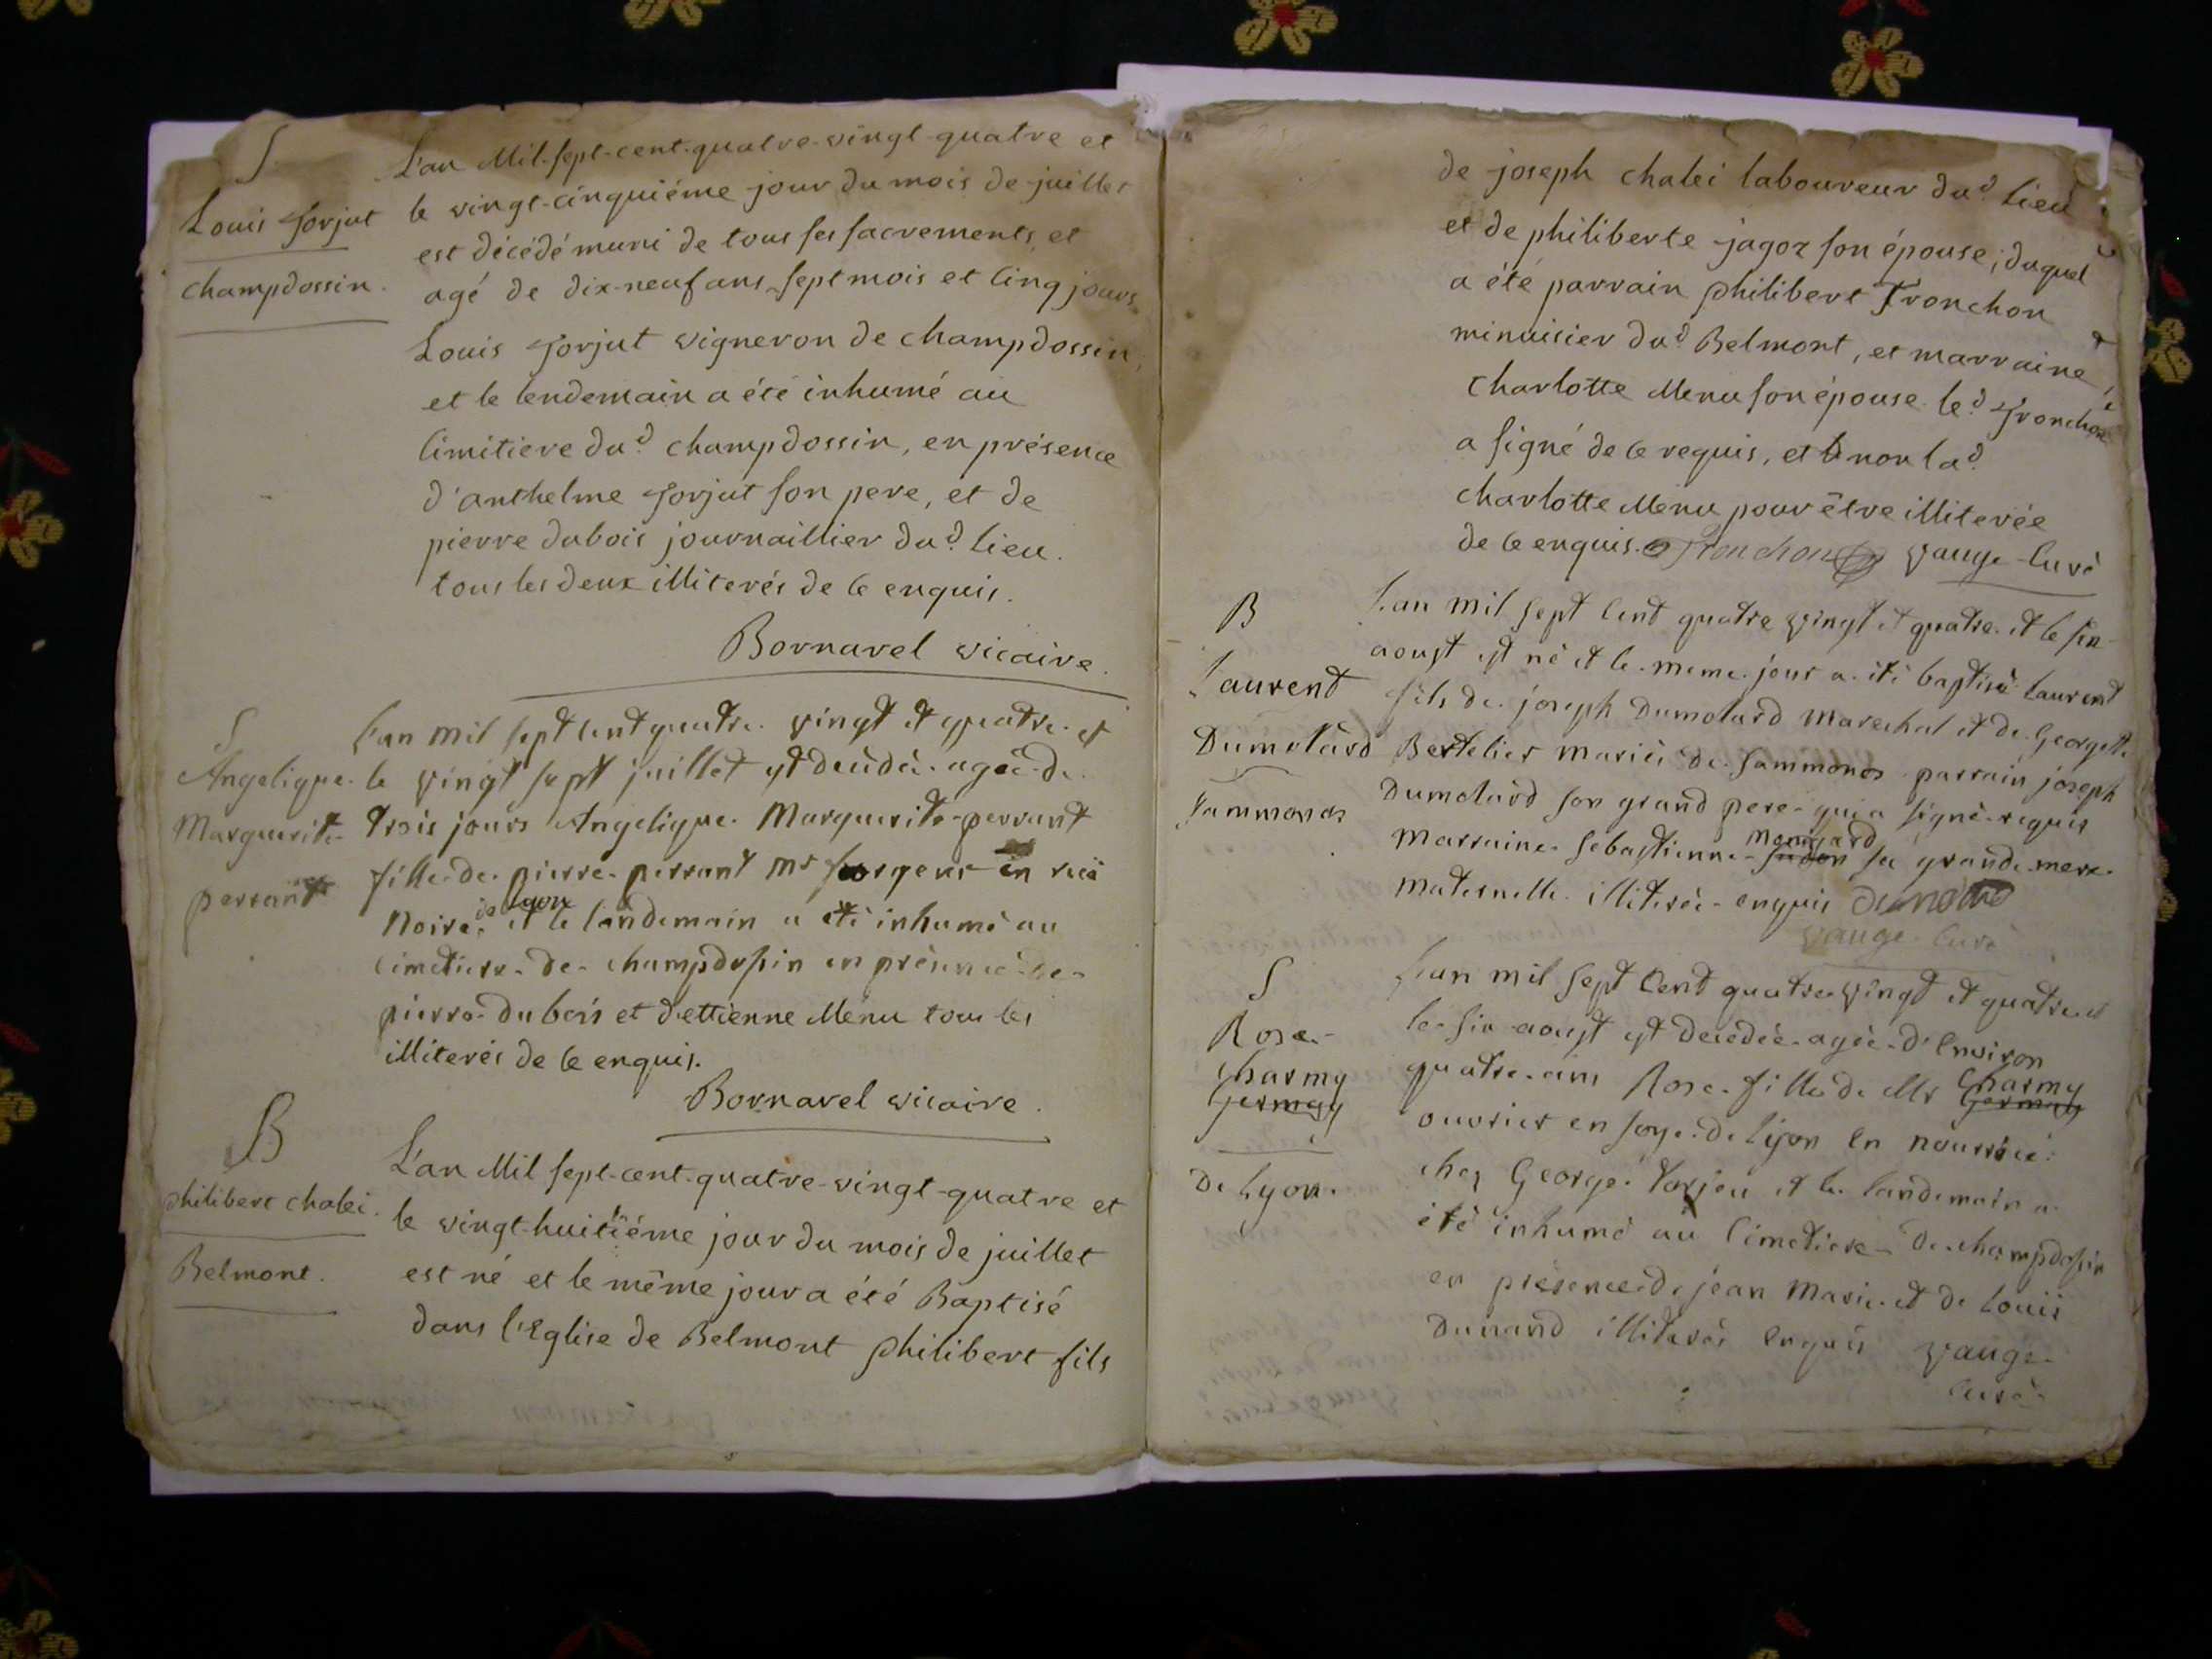 S
Louis Jorjut
champdossin.
L'an Mil-sept-cent-quatre-vingt-quatre et
le vingt-cinquiéme jour du mois de juillet
est décédé muni de tous ses sacrements, et
agé de dix-neuf ans sept mois et cinq jours
Louis Jorjut vigneron de champdossin,
et le lendemain a été inhumé au
cimitiere dud. champdossin, en présence
d'anthelme Jorjut son pere, et de
pierre dubois journaillier dud. lieu.
tous les deux illiterés de ce enquis.
Bornarel vicaire.
S
Angelique
Marguerite
perrant
L'an mil sept cent quatre vingt et quatre et
le vingt sept juillet est decedée agée de
trois jours Angelique Marguerite perrant
fille de pierre perrant Mr en
Noire de Lyon et le landemain a eté inhumé au
cimetiere de champdossin en présence de
pierre dubois et d'ettienne Menu tous les
illiterés de ce enquis.
Bornarel vicaire.
B
philibert chalei.
Belmont.
L'an Mil sept-cent-quatre-vingt-quatre et
le vingt-huitiéme jour du mois de juillet
est né et le même jour a été Baptisé
dans l'Eglise de Belmont philibert fils
de joseph chalei laboureur dud. lieu
et de philiberte jagoz son épouse; duquel
a été parrain philibert Tronchon
minuisier dud. Belmont, et marraine
charlotte Menu son épouse. led. Tronchon
a signé de ce requis, et non lad.
charlotte Menu pour être illiterée
de ce enquis. Tronchon vauge curé
B
Laurent
Dumolard
Sammonod
L'an mil sept cent quatre vingt et quatre et le six
aoust est né et le meme jour a été baptisé Laurent
fils de joseph Dumolard marechal et de Georgette
Bertelier mariés de Sammonod parrain joseph
Dumolard son grand pere qui a signé requis
marraine Sebastienne sa grande mere
maternelle illiterée enquis Dumolard
vauge curé
S
Rose
Charmy
De Lyon.
L'an mil sept cent quatre vingt et quatre et
le six aoust est decedée agée d'environ
quatre ans Rose fille de Mr Charmy
ouvrier en soye de Lyon en nourrice
chez George Jorjeu et le landemain a
été inhumé au cimetiere de champdossin
en presence de jean Marie et de Louis
Dunand illiterés enquis vauge
curé